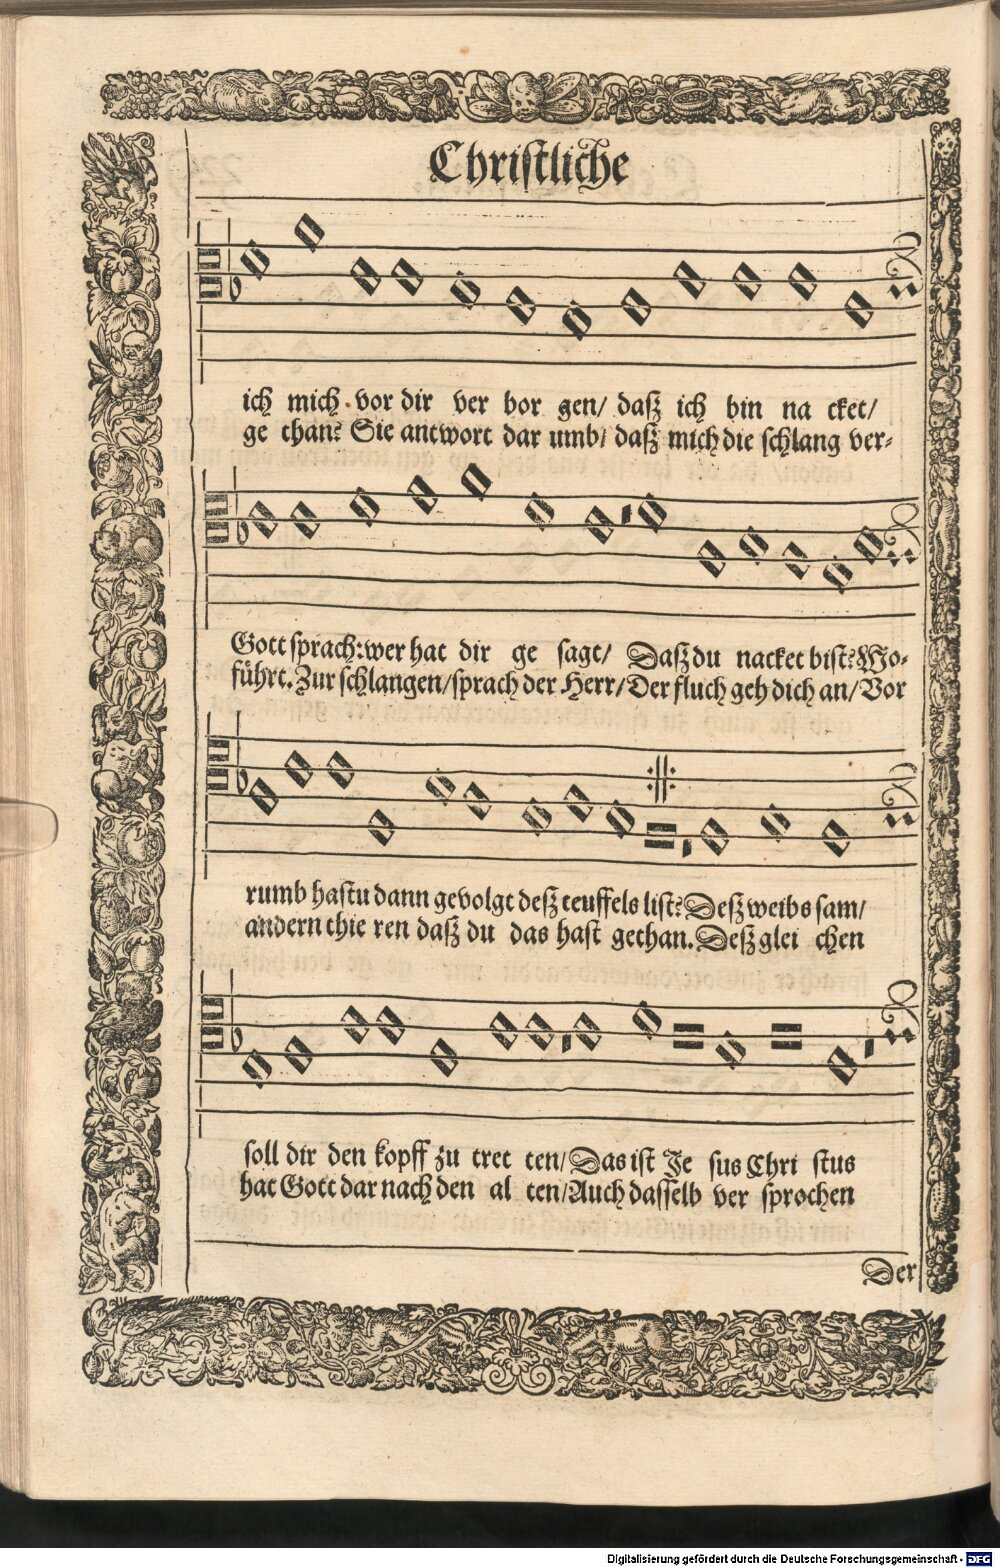 Christliche
ich mich vor dir ver bor gen/ daß ich bin na cket/
ge than? Sie antwort dar umb/ daß mich die schlang ver-
Gott sprach: wer hat dir ge sagt/ Daß du nacket bist? Wo-
führt. Zur schlangen/ sprach der Herr/ Der fluch geh dich an/ Vor
rumb hastu dann gevolgt deß teuffels list? Deß weibs sam/
andern thie ren daß du das hast gethan. Deß glei chen
soll dir den kopff zu tret ten/ Das ist Je sus Chri stus
hat Gott dar nach den al ten/ Auch dasselb ver sprochen
Der
Digitalisierung gefördert durch die Deutsche Forschungsgemeinschaft - DFG